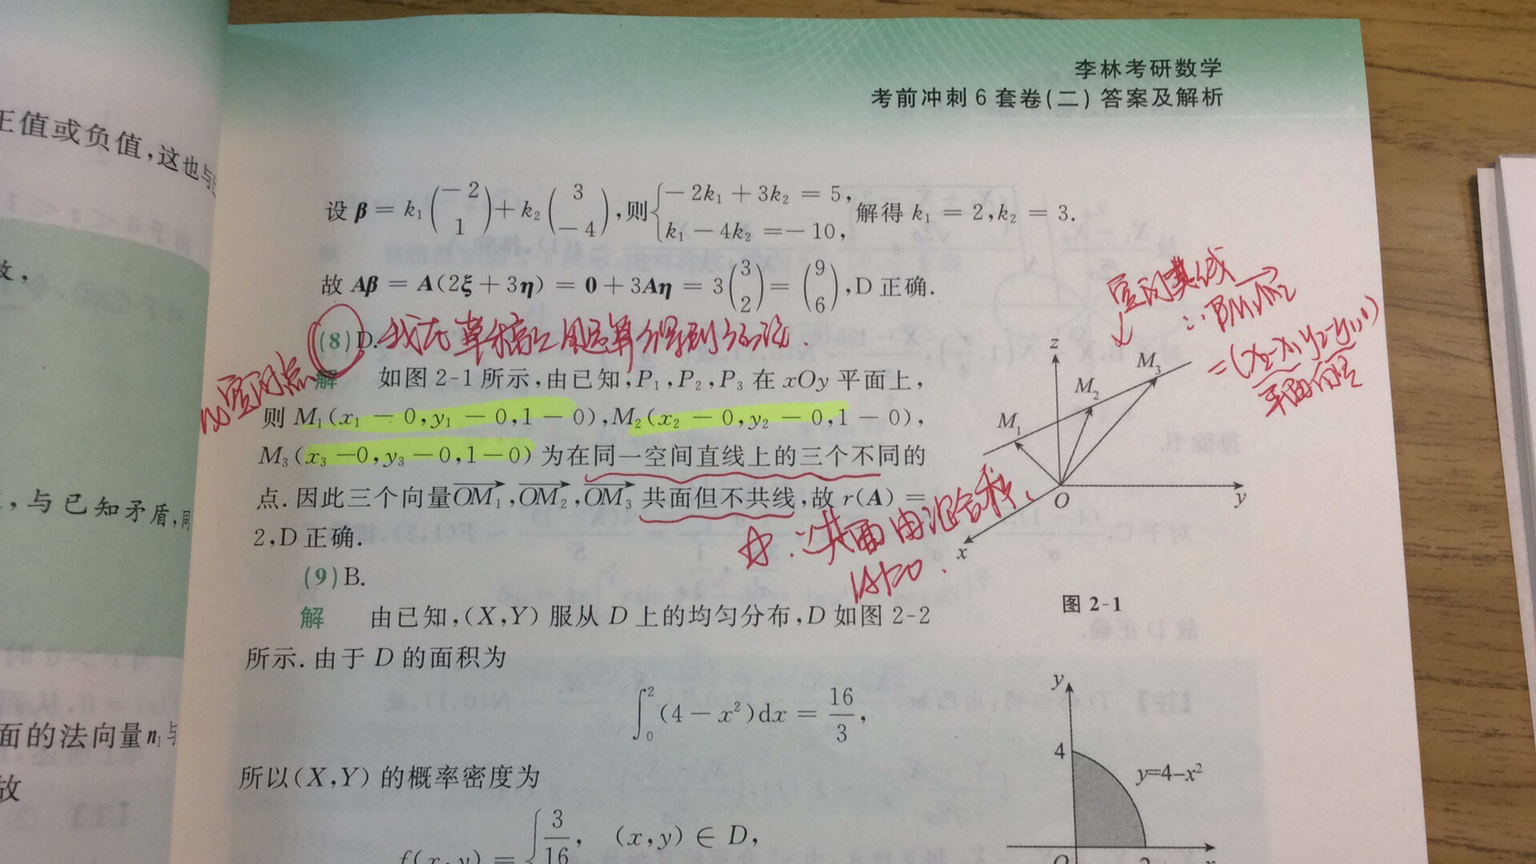 李林考研数学
考前冲刺6套卷(二) 答案及解析
正值或负值,这也与
设 β = k₁(−2 1) + k₂(3 −4), 则 {−2k₁ + 3k₂ = 5, k₁ − 4k₂ = −10, 解得 k₁ = 2, k₂ = 3.
故 Aβ = A(2ξ + 3η) = 0 + 3Aη = 3(3 2) = (9 6), D 正确.
(8) D. 我在草稿上用运算得到结论.
空间点
解 如图 2-1 所示, 由已知, P₁, P₂, P₃ 在 xOy 平面上,
则 M₁(x₁ − 0, y₁ − 0, 1 − 0), M₂(x₂ − 0, y₂ − 0, 1 − 0),
M₃(x₃ − 0, y₃ − 0, 1 − 0) 为在同一空间直线上的三个不同的
点. 因此三个向量 OM₁, OM₂, OM₃ 共面但不共线, 故 r(A) =
2, D 正确.
∵共面由混合积,
|A|=0.
空间直线
平面向量
z
M₁
M₂
M₃
O
y
x
图 2-1
(9) B.
解 由已知, (X, Y) 服从 D 上的均匀分布, D 如图 2-2
所示. 由于 D 的面积为
∫₀² (4 − x²)dx = 16/3,
所以 (X, Y) 的概率密度为
f(x, y) = {3/16, (x, y) ∈ D,
y
4
y=4−x²
O
2
x
,与已知矛盾,同
面的法向量 n₁ 与
放